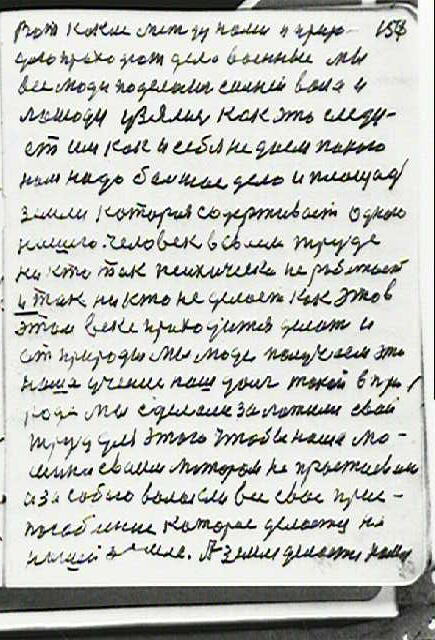 Вот какие между нами и приро- 153
дою приходют дело военные мы
все люди поделали силней вола и
лошади узяли как это следу-
ет им как и себя не даем такого
нам надо большое дело и площадь
земли которая содерживает одного
нашего человек в своем труде
никто так психически не работает
и так никто не делает как этов
этом веке приходится делать и
от природы мы люде получаем это
наша учение наш долг такой в при/
роде мы сделали заложили свой
труд для этого чтобы наша мо-
шина своим мотором не простаивала
а за собою волокли все свое прис-
пособление которое делается на
нашей земле. А земля делается нами